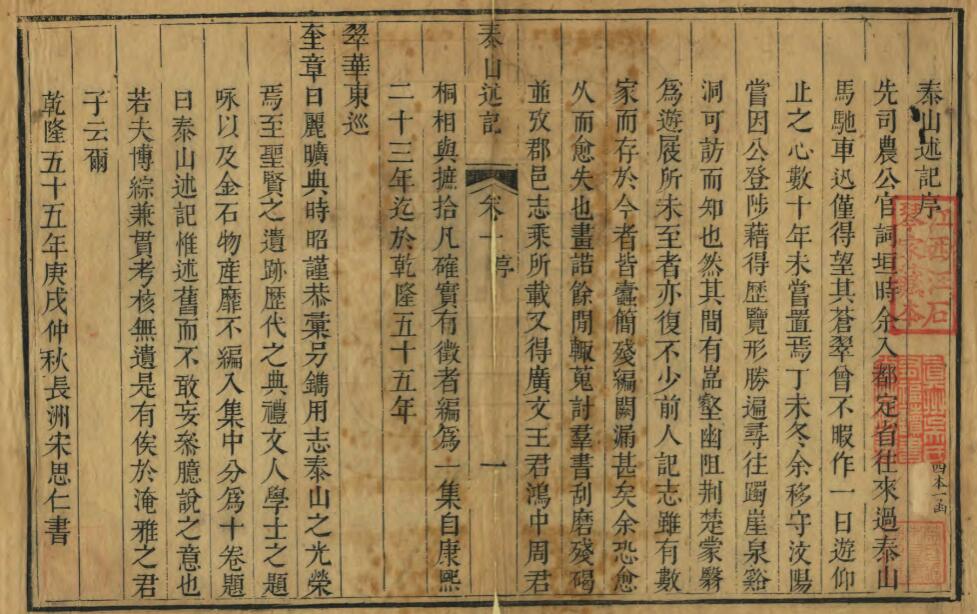 泰山述記序
先司農公官詞垣時余入都定省往來過泰山
馬馳車迅僅得望其蒼翠曾不暇作一日遊仰
止之心數十年未嘗置焉丁未冬余移守汶陽
嘗因公登陟藉得歷覽形勝遍尋往躅崖泉谿
洞可訪而知也然其間有嵓壑幽阻荆楚蒙翳
爲遊屐所未至者亦復不少前人記志雖有數
家而存於今者皆蠹簡殘編闕漏甚矣余恐愈
久而愈失也畫諾餘閒輙蒐討羣書刮磨殘碣
並攷郡邑志乘所載又得廣文王君鴻中周君
泰山述記
卷一
序
一
桐相與摭拾凡確實有徵者編爲一集自康熙
二十三年迄於乾隆五十五年
翠華東巡
奎章日麗曠典時昭謹恭彙另鐫用志泰山之光榮
焉至聖賢之遺跡歷代之典禮文人學士之題
咏以及金石物產靡不編入集中分爲十卷題
曰泰山述記惟述舊而不敢妄叅臆說之意也
若夫博綜兼貫考核無遺是有俟於淹雅之君
子云爾
乾隆五十五年庚戌仲秋長洲宋思仁書
四本一函